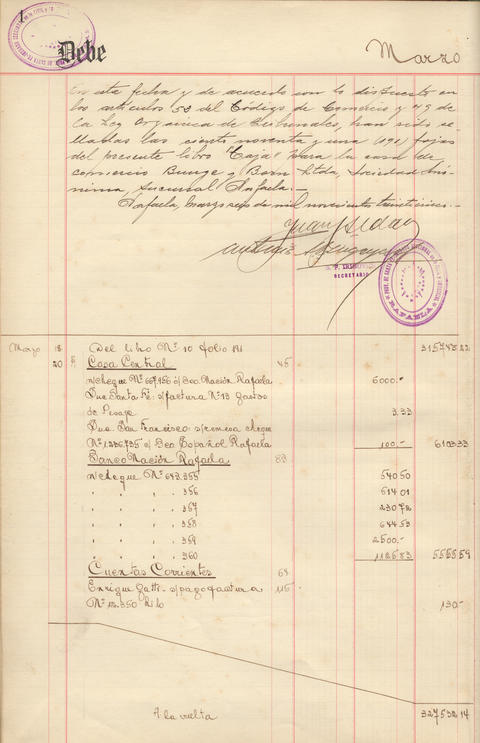 Debe
Marzo
En esta fecha y de acuerdo con lo dispuesto en
los artículos 53 del Código de Comercio y 49 de
la Ley Orgánica de Tribunales, han sido se-
lladas las ciento noventa y una (191) fojas
del presente libro "Caja" para la casa de
comercio Bunge y Born Ltda, Sociedad Anó-
nima, Sucursal Rafaela.-
Rafaela, Marzo seis de mil novecientos
SECRETARIO
RAFAELA
Marzo 18 Del libro Nº 10 folio 191 315743 22
20 Casa Central 45
n/cheque Nº 667.956 c/ Bco. Nación Rafaela 6000.-
Suc. Santa Fé: s/factura Nº 13 Gastos
de Pesaje 3.33
Suc. San Francisco: s/remesa cheque
Nº 1.236.735 c/ Bco Español Rafaela 100.- 6103.33
Banco Nación Rafaela 83
n/cheque Nº 643.355 540 50
" " " 356 614 01
" " " 357 230 72
" " " 358 644 53
" " " 359 2500.-
" " " 360 1125 83 5555 59
Cuentas Corrientes 64
Enrique Gatti - s/pago factura 115
Nº 12.350 130.-
A la vuelta 327532 14